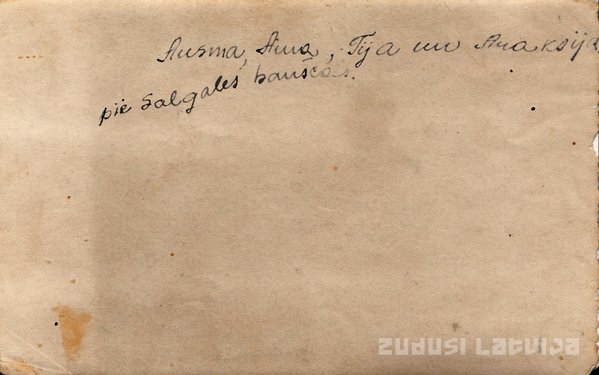 Ausma, Aina, Tija un Anaksija
pie Salgales bauskas.
ZUDUSI LATVIJA